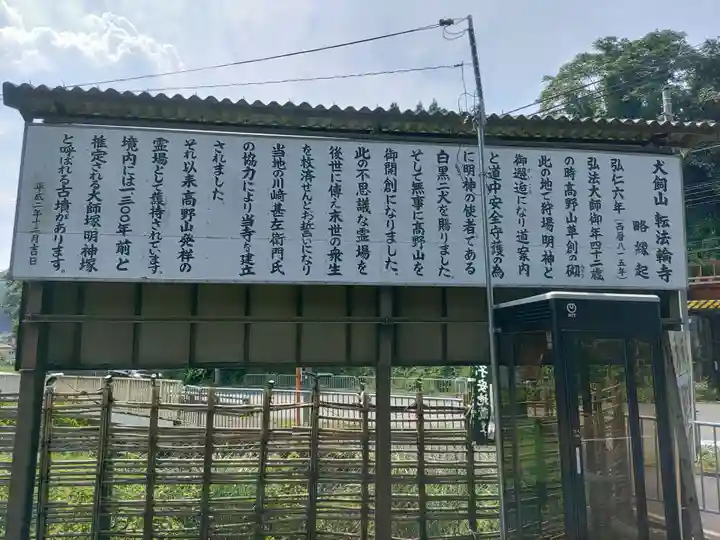 犬飼山 転法輪寺
略縁起
弘仁六年(西暦八一五年)
弘法大師御年四十二歳
の時高野山草創の御
此の地で狩場明神と
御邂逅になり道案内
と道中安全守護の為
に明神の使者である
白黒二犬を賜りました。
そして無事に高野山を
御開創になりました。
此の不思議な霊場を
後世に傳え末世の衆生
を救済せんとお誓いになり
当地の川崎甚左衛門氏
の協力により当寺を建立
されました。
それ以来、高野山発祥の
霊場として護持されています。
境内には一三〇〇年前と
推定される犬師塚、明神塚
と呼ばれる古墳があります。
平成二年十二月吉日
子安地蔵